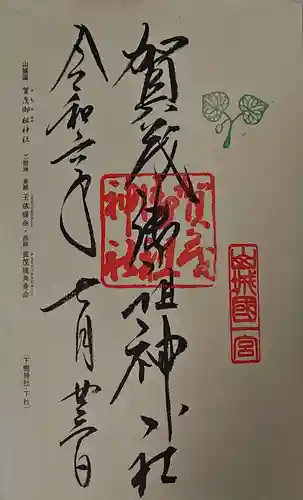 山城国一宮
賀茂御祖神社
賀茂御祖神社
令和六年七月廿三日
山城国 賀茂御祖神社
ご祭神 東殿 玉依媛命・西殿 賀茂建角身命
(下鴨神社・下社)